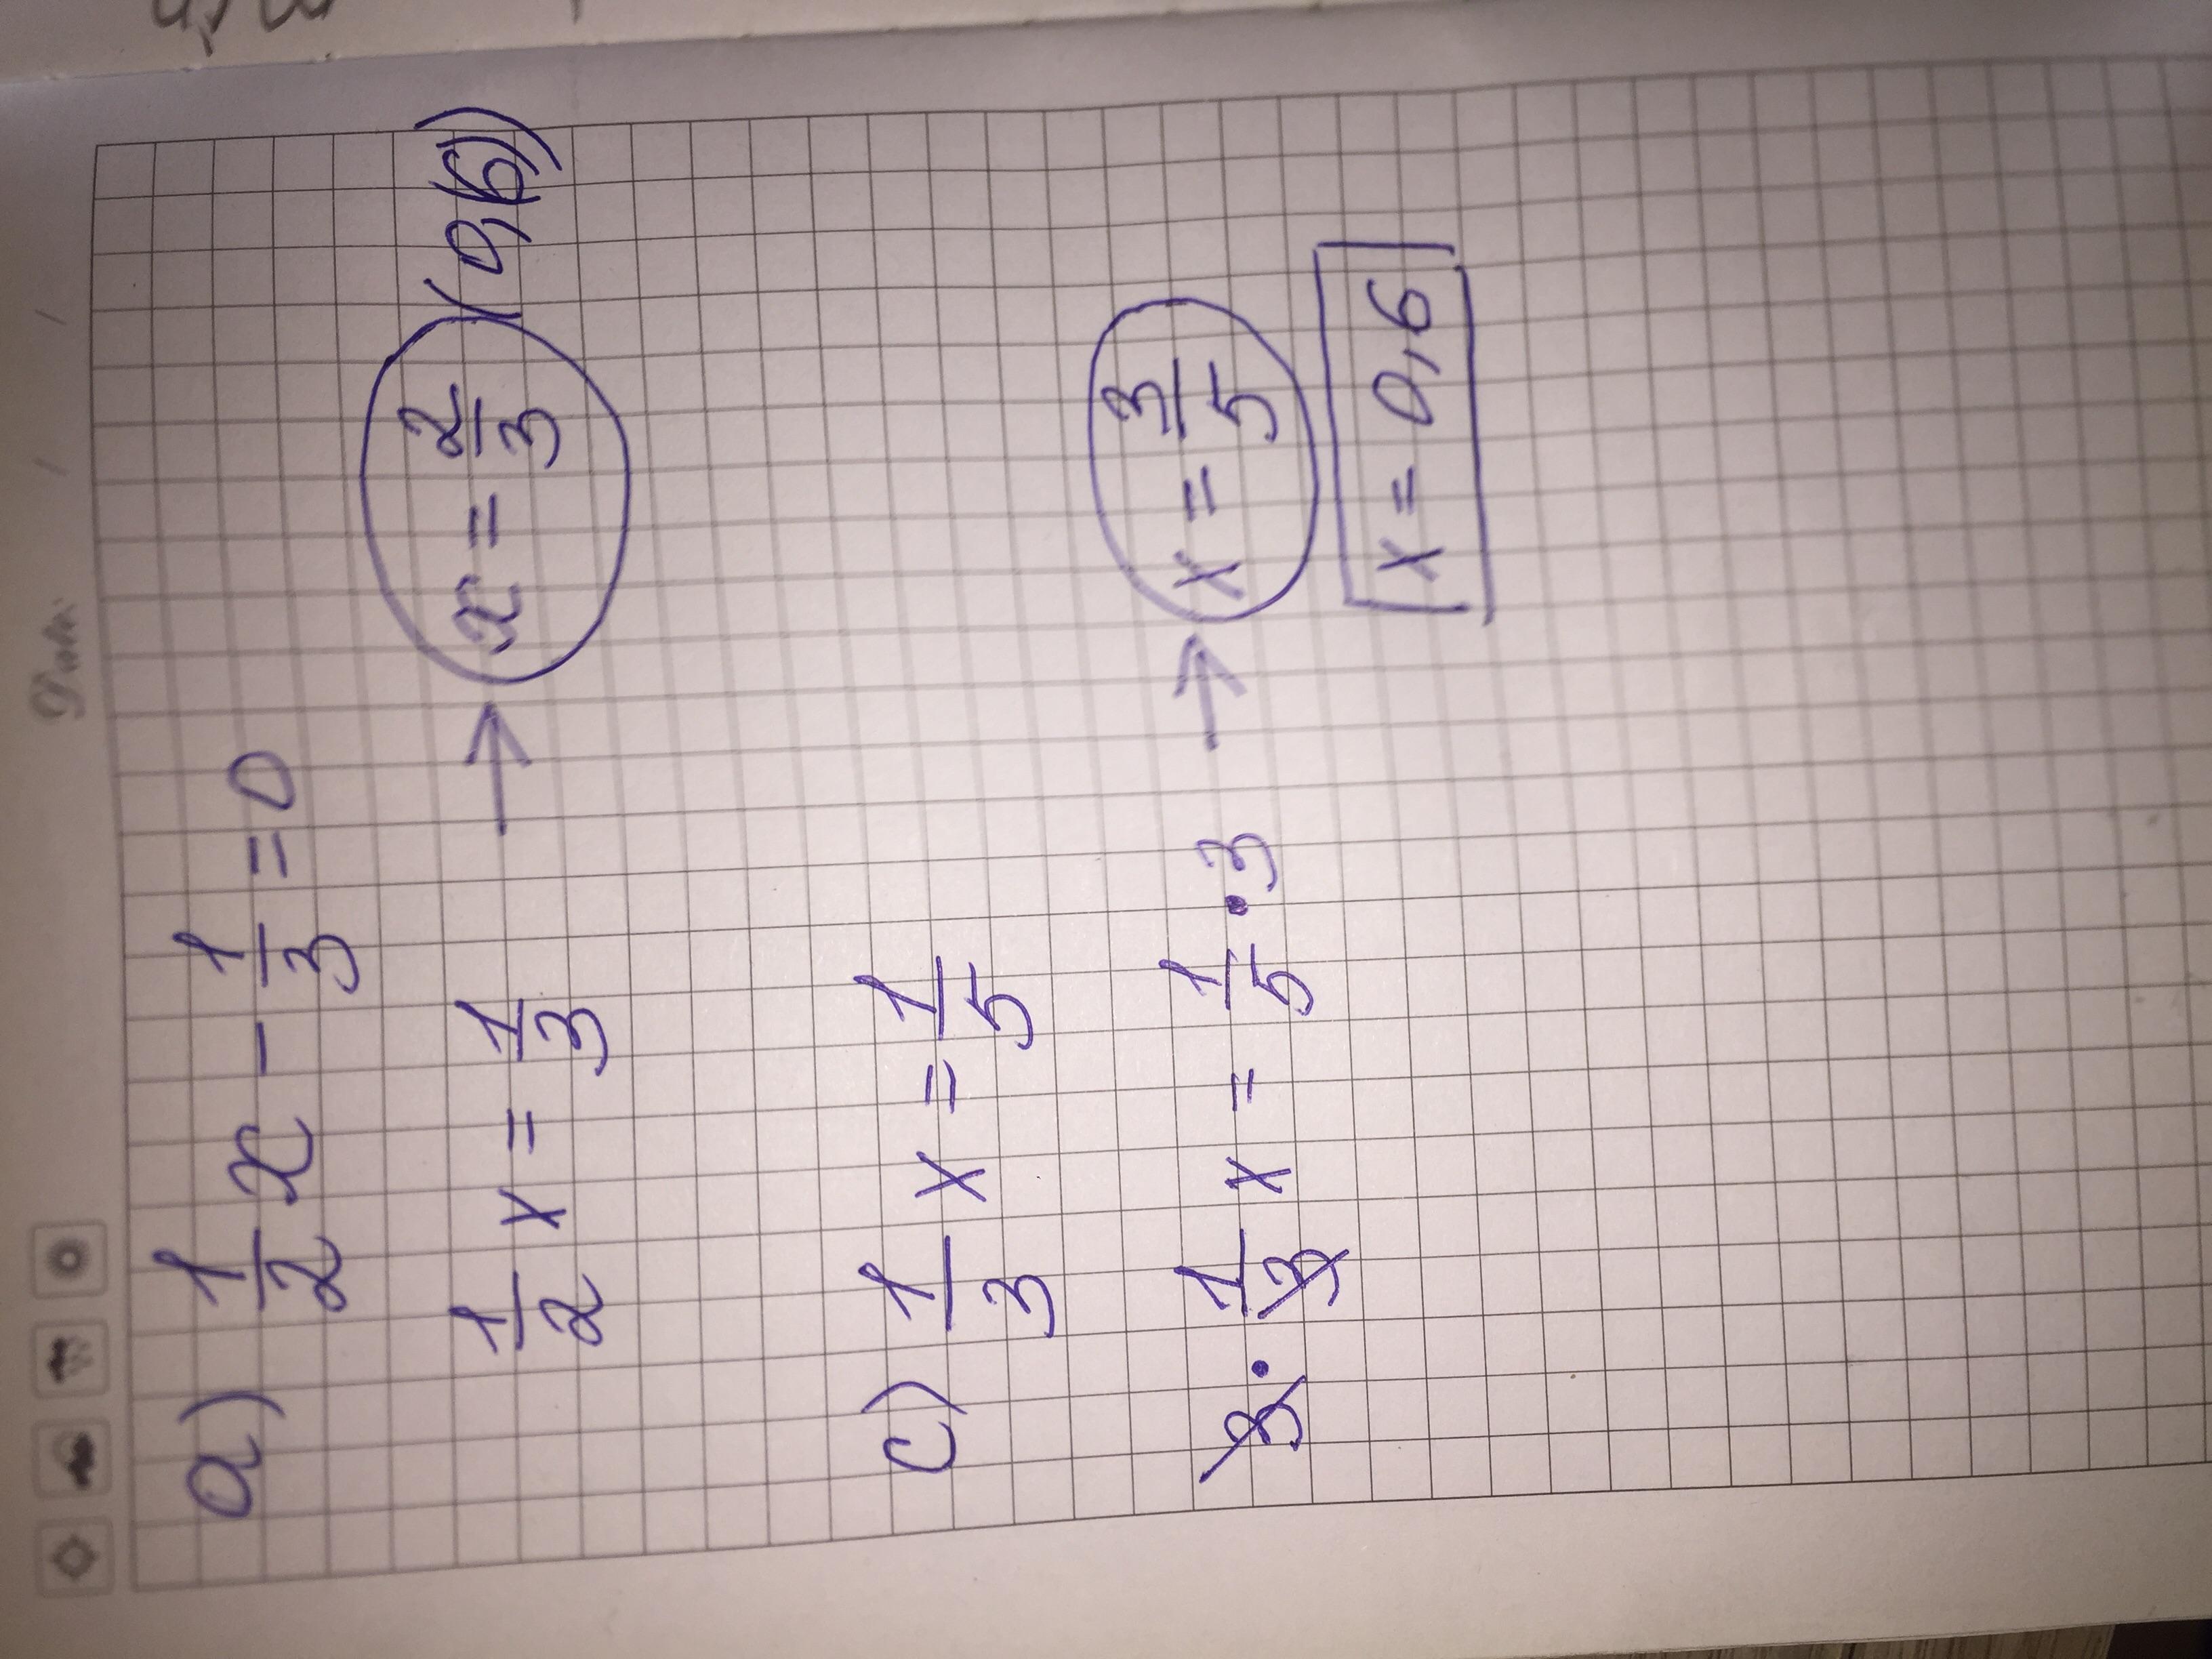 a) 1/2 x - 1/3 = 0
1/2 x = 1/3 → x = 2/3 (0,(6))
c) 1/3 x = 1/5
3 · 1/3 x = 1/5 · 3 → x = 3/5
x = 0,6